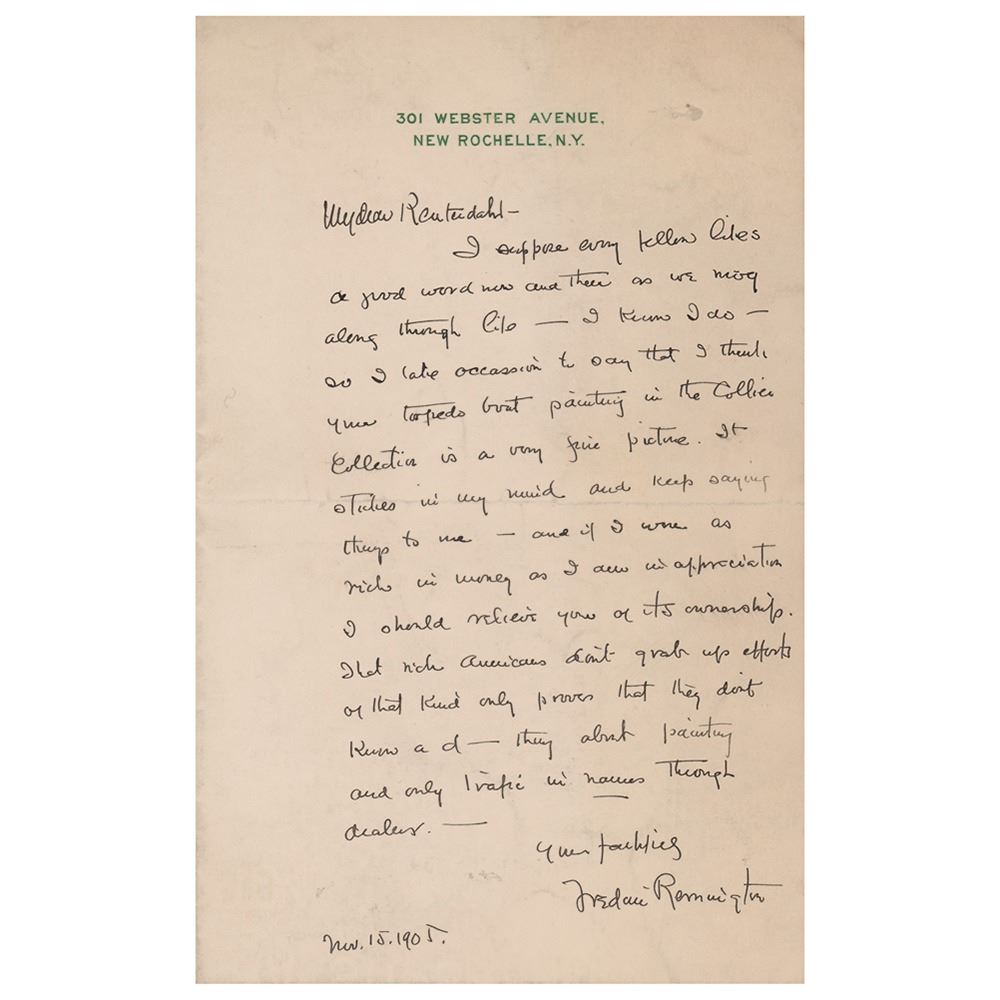 301 WEBSTER AVENUE,
NEW ROCHELLE, N.Y.
My dear Reuterdahl –
I suppose every fellow likes
a good word now and then as we mog
along through life — I know I do —
so I take occassion to say that I think
your torpedo boat painting in the Collier
Collection is a very fine picture. It
stickes in my mind and keep saying
things to me — and if I were as
rich in money as I am in appreciation
I should relieve you of its ownership.
That rich Americans dont grab up efforts
of that kind only proves that they dont
know a d — thing about painting
and only trafic in names through
dealers. —
Yours faithfully
Frederic Remington
Nov. 15. 1905.